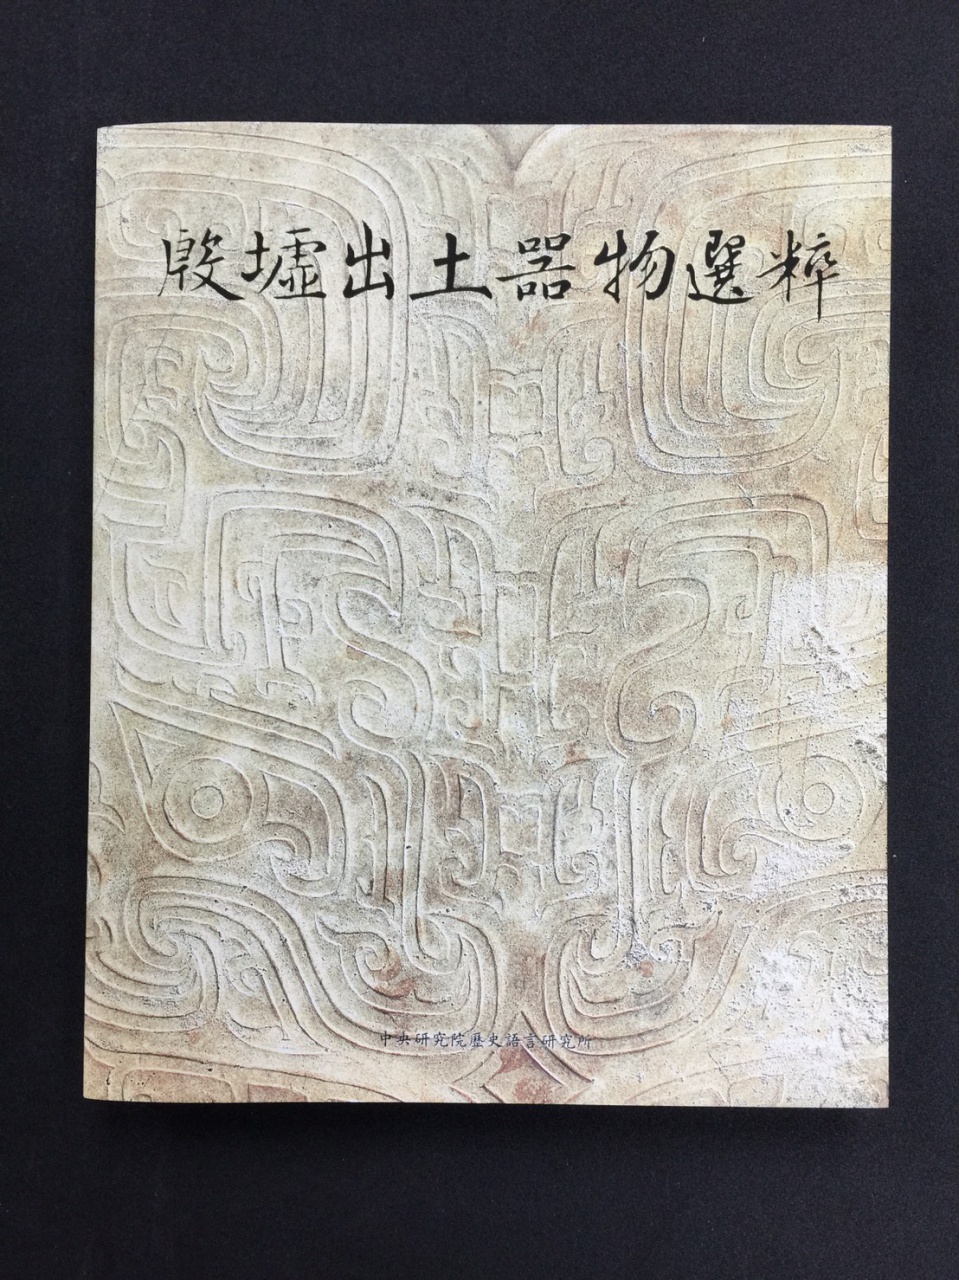 殷墟出土器物選粹
中央研究院歷史語言研究所